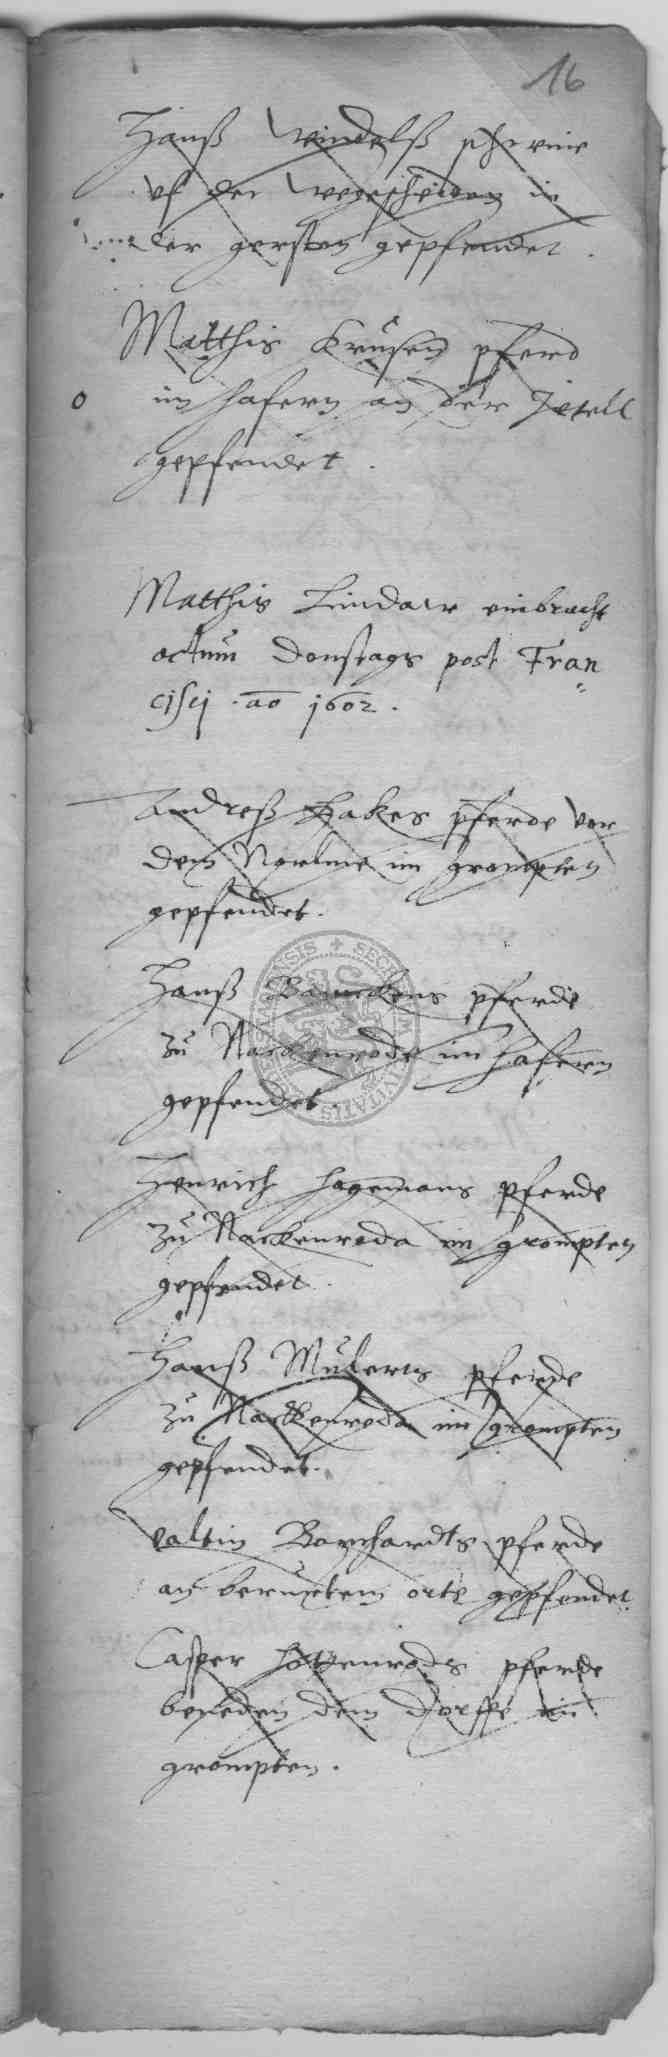 16
Hanß Windelß schweine
uf der Wegescheiden in
der gersten gepfendet.
Matthis Krusen pferd
o im hafern an der Jetell
gepfendet.
Matthis Lindaw einbracht
actum Donstags post Fran
cisci. ao 1602.
Andreß Hakes pferde vor
dem in grompten
gepfendet.
Hanß pferde
zu Nackenrode im hafern
gepfendet.
Henrich Hagemans pferde
zu Nackenroda im grompten
gepfendet.
Hanß Mulerts pferde
zu Nackenroda im grompten
gepfendet.
Valtin Borchardts pferde
an berurtem orte gepfendet.
Casper Hottenrods pferde
beneden dem Dorffe in
grompten.